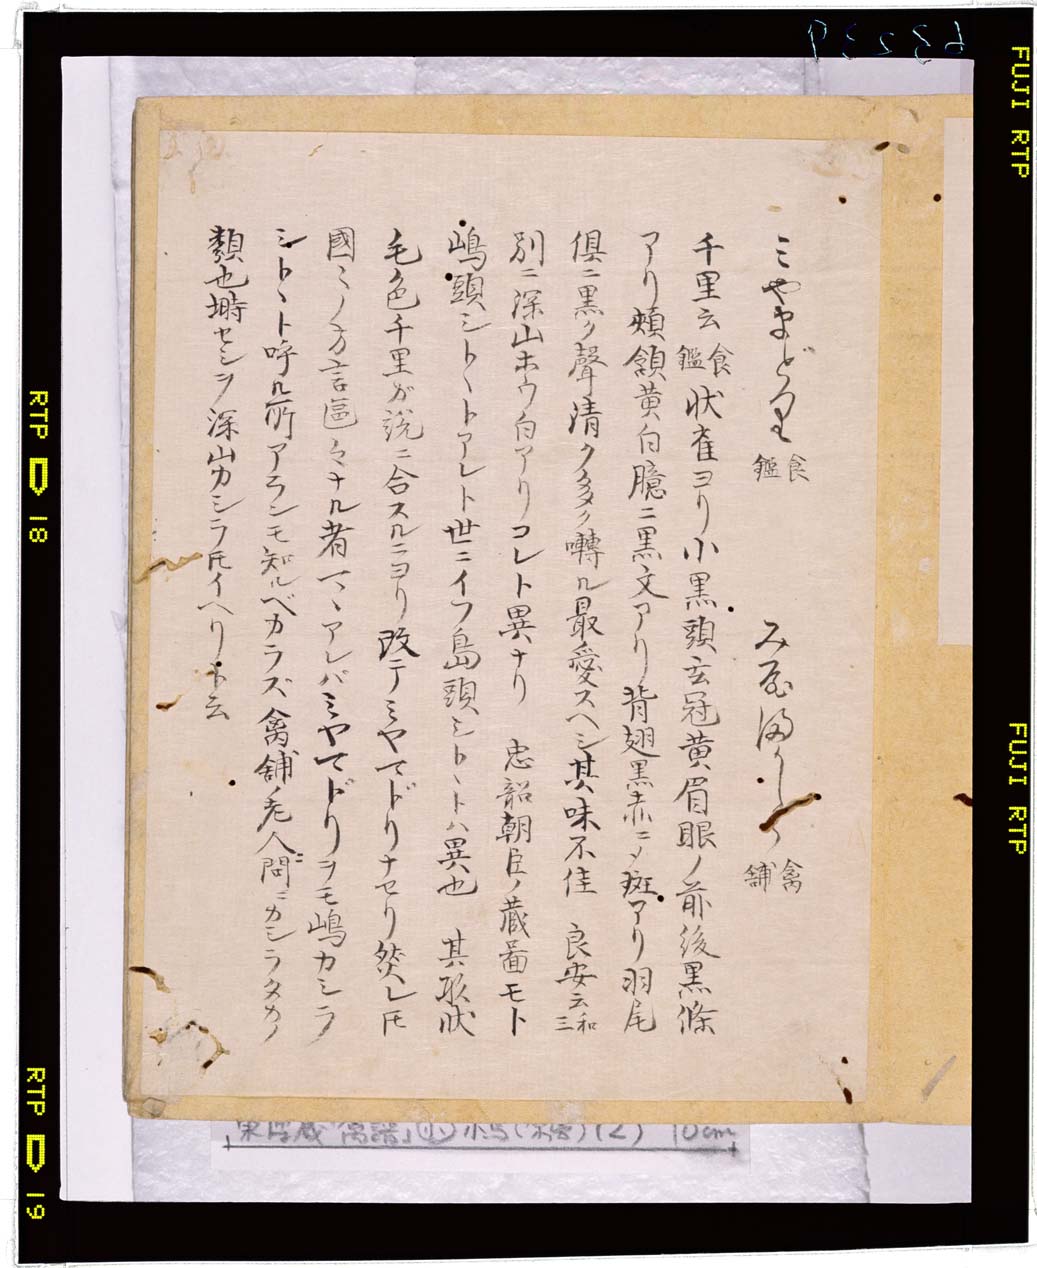 63239
FUJI RTP
ミやまどり 食鑑 み山ほゝじろ 禽舗
千里云食鑑状雀ヨリ小黒頭玄冠黄眉眼ノ前後黒條
アリ頬頷黄白臆ニ黒文アリ背翅黒赤ニ〆斑アリ羽尾
倶ニ黒ク聲清ク多ク囀ル最愛スヘシ其味不佳 良安云和三
別ニ深山ホウ白アリコレト異ナリ 忠韶朝臣ノ蔵圖モト
嶋頭シトヽトアレト世ニイフ島頭シトヽトハ異也 其形状
毛色千里ガ説ニ合スルニヨリ改テミヤマドリナセリ然レ𪜈
國ミノ方言區々ナル者マヽアレバミヤマドリヲモ嶋カシラ
シトヽト呼ル所アランモ知ルベカラズ禽舗ノ老人問ニカシラタカノ
類也塒セシヲ深山カシラ𪜈イヘリト云
RTP 18
FUJI RTP
RTP 19
東博蔵「禽譜」小鳥(2) 10cm